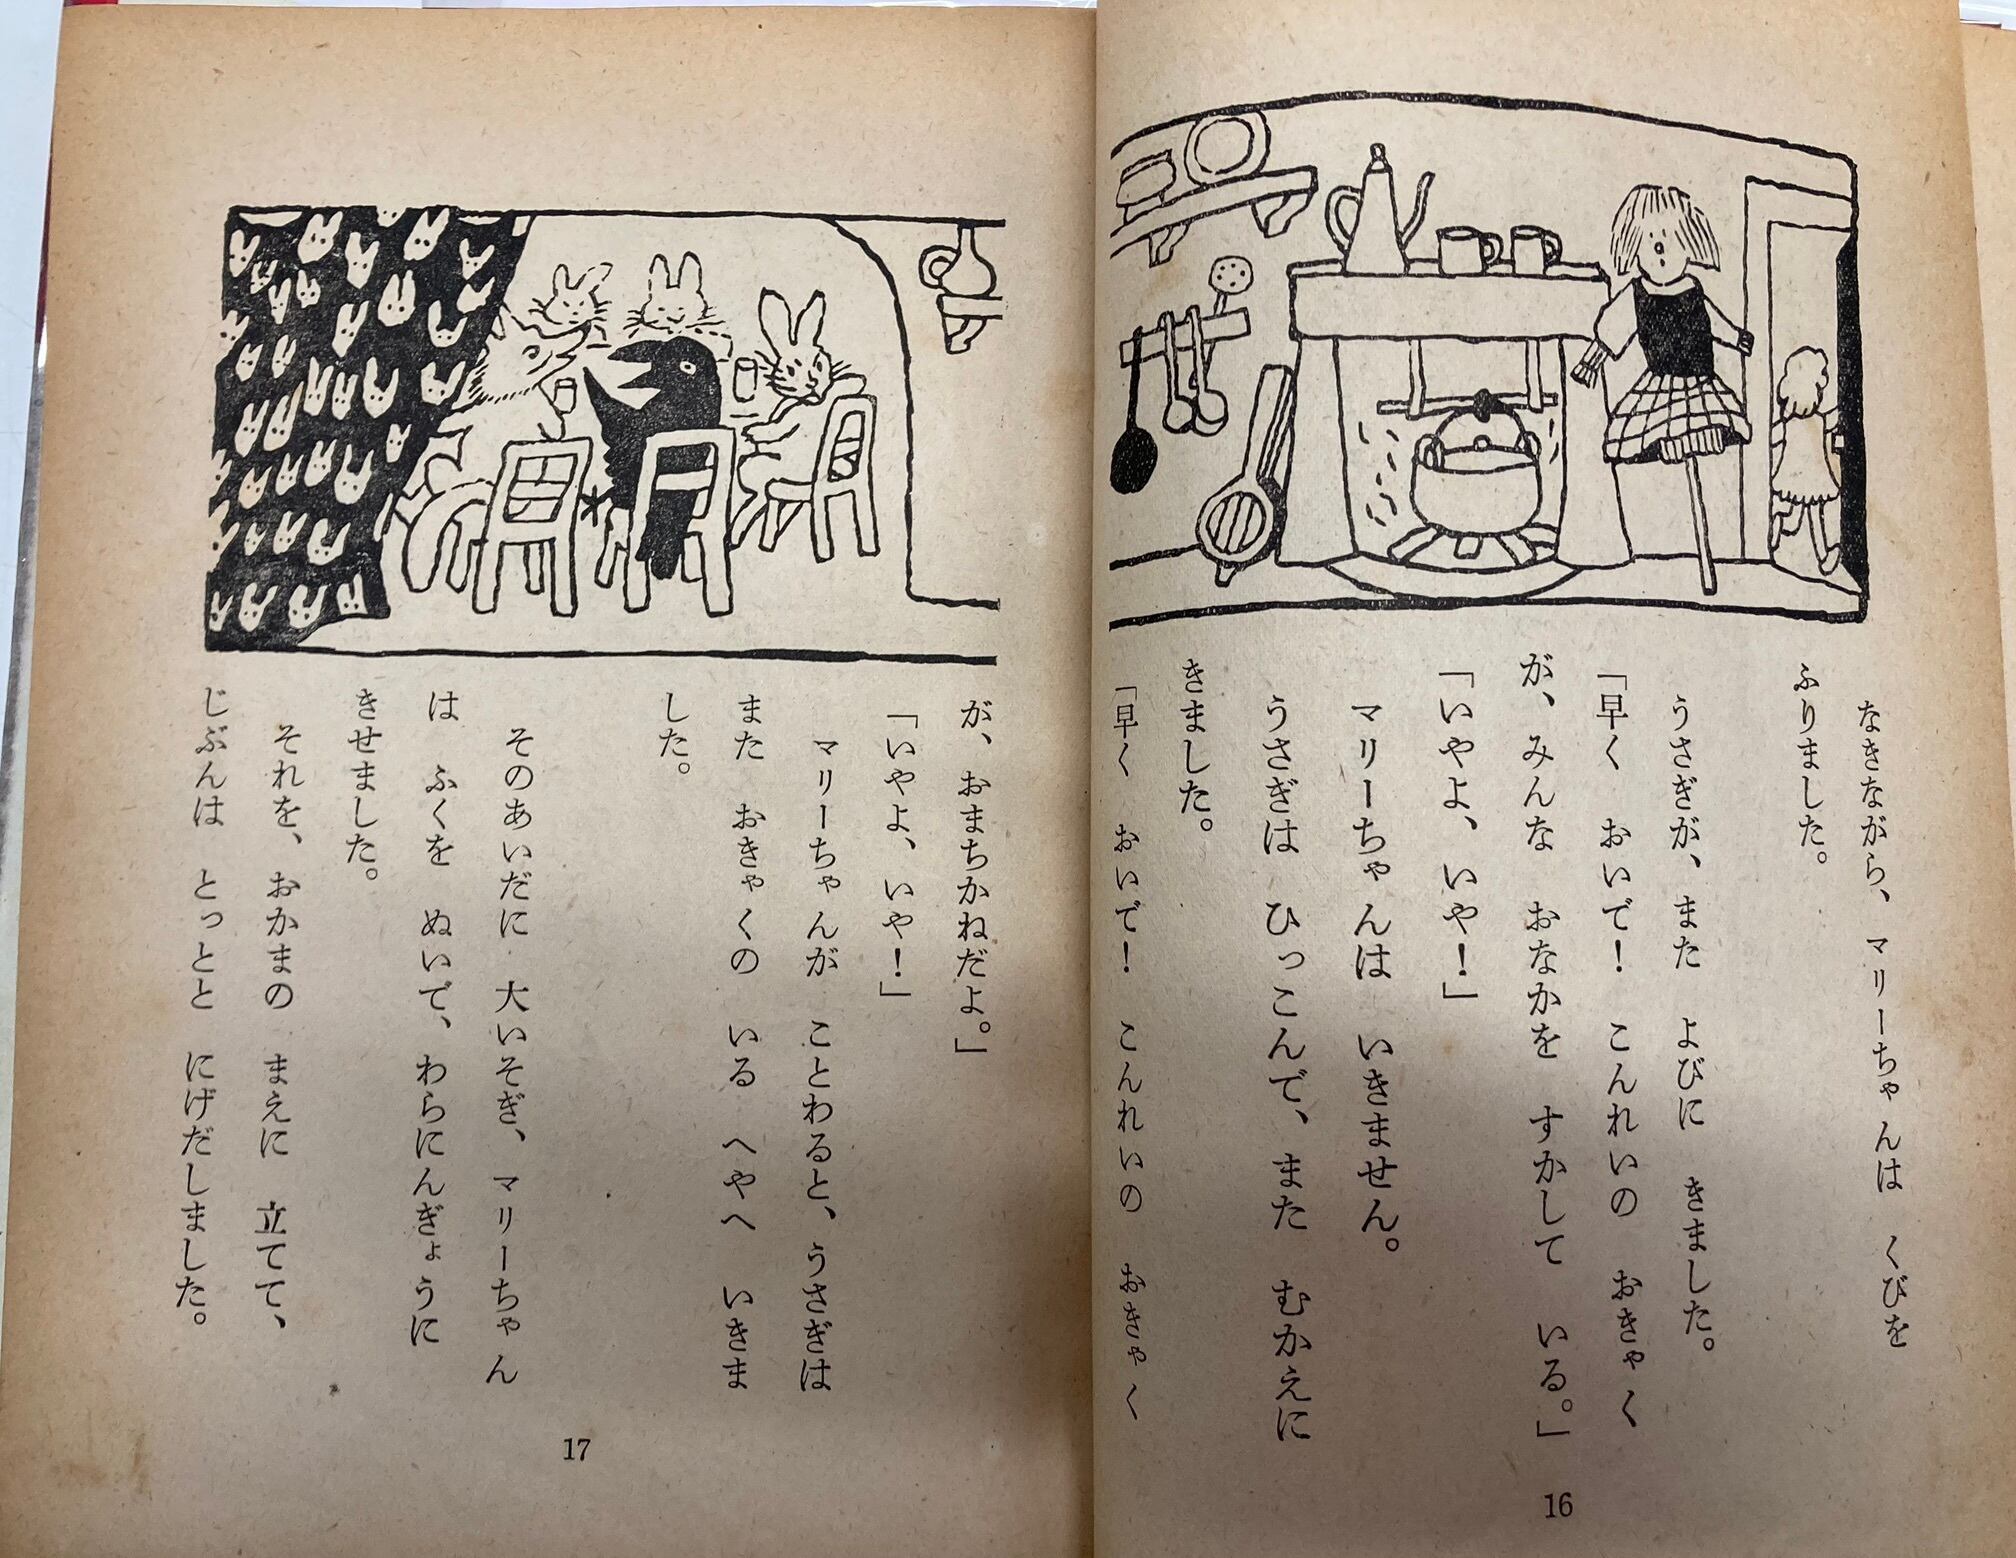 なきながら、マリーちゃんは くびを
ふりました。
うさぎが、また よびに きました。
「早く おいで！ こんれいの おきゃく
が、みんな おなかを すかして いる。」
「いやよ、いや！」
マリーちゃんは いきません。
うさぎは ひっこんで、また むかえに
きました。
「早く おいで！ こんれいの おきゃく
16
が、おまちかねだよ。」
「いやよ、いや！」
マリーちゃんが ことわると、うさぎは
また おきゃくの いる へやへ いきま
した。
そのあいだに 大いそぎ、マリーちゃん
は ふくを ぬいで、わらにんぎょうに
きせました。
それを、おかまの まえに 立てて、
じぶんは とっとと にげだしました。
17